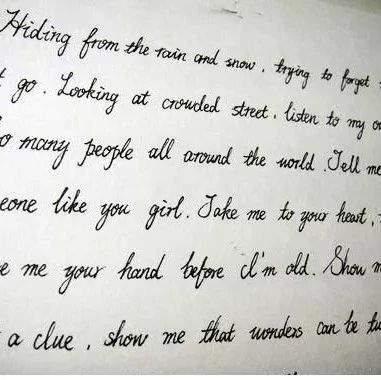 Hiding from the rain and snow, trying to forget
go. Looking at crowded street, listen to my
many people all around the world. Tell me
eone like you girl. Take me to your heart,
e me your hand before I'm old. Show
a clue, show me that wonders can be